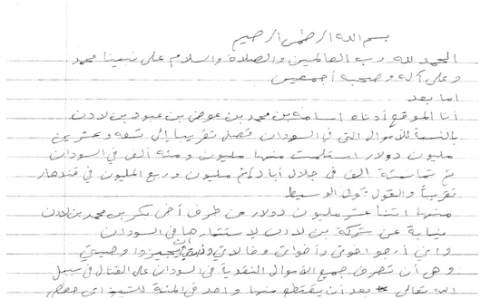 بسم الله الرحمن الرحيم
الحمد لله رب العالمين والصلاة والسلام على نبينا محمد
وعلى آله وصحبه أجمعين
اما بعد
أنا الموقع أدناه اسامه بن محمد بن عوض بن عبود بن لادن
بالنسبة للأموال التي في السودان فصل تقريبا إلى تسعه وعشرين
مليون دولار استلمت منها مليون ومئه ألف في السودان
ثم ثمانمئة الف في جلال آباد ثم مليون وربع المليون في قندهار
تقريباً والقول قول الوسيط
منها اثنا عشر مليون دولار من طرف أخي بكر بن محمد بن لادن
نيابة عن شركة بن لادن لإستثمارها في السودان
و اني أرجو اخوتي وأخواتي وخالاتي أن يجيزوا وصيتي
وهي أن تصرف جميع الأموال النقدية في السودان على القتال في سبيل
الله تعالى بعد أن يقتطع منها واحد في المئة للشيخ